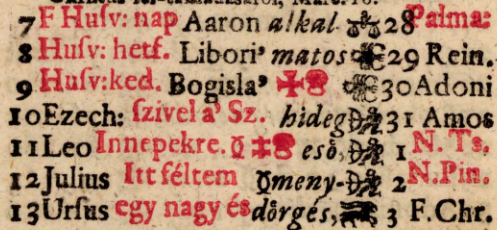 7 F Husv: nap Aaron alkal- 28 Palma:
8 Husv: hetf. Libori' matos 29 Rein.
9 Husv:ked. Bogisla' 30 Adoni
10 Ezech: szivel a' Sz. hideg 31 Amos
11 Leo Innepekre. ☿ eső, 1 N. Ts.
12 Julius Itt féltem ☿ meny- 2 N.Pin.
13 Ursus egy nagy és dörgés, 3 F.Chr.